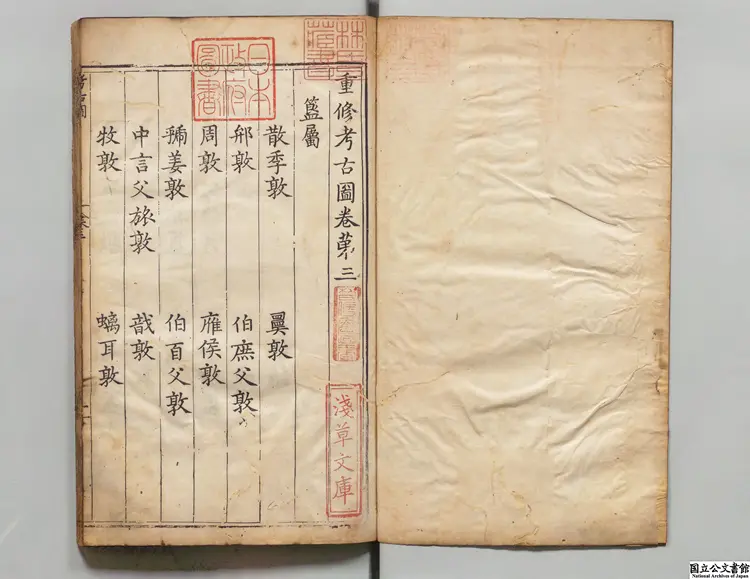 重修考古圖卷第三
簋屬
散季敦 翼敦
邢敦 伯庶父敦
周敦 雁侯敦
虢姜敦 伯百父敦
中言父旅敦 戠敦
牧敦 螭耳敦
林氏藏書
日本政府圖書
淺草文庫
国立公文書館
National Archives of Japan